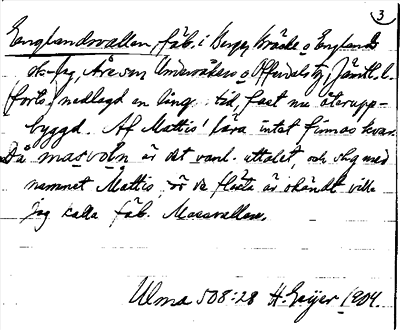 3
Englandsvallen, fäb. i Berge, Bräcke o Englands
sk-lag, Åre sn, Undersåkers o Offerdals tg, Jämtl. l.
förts. nedlagd en läng. tid, fast nu återupp-
byggd. Af Mattis! lära intet finnas kvar.
Då masvɔln är det vanl. uttalet, och
namnet Mattis är de flesta är okändt ville
jag kalla fäb. Massvallen.
Ulma 508:28 H. Geijer 1904.